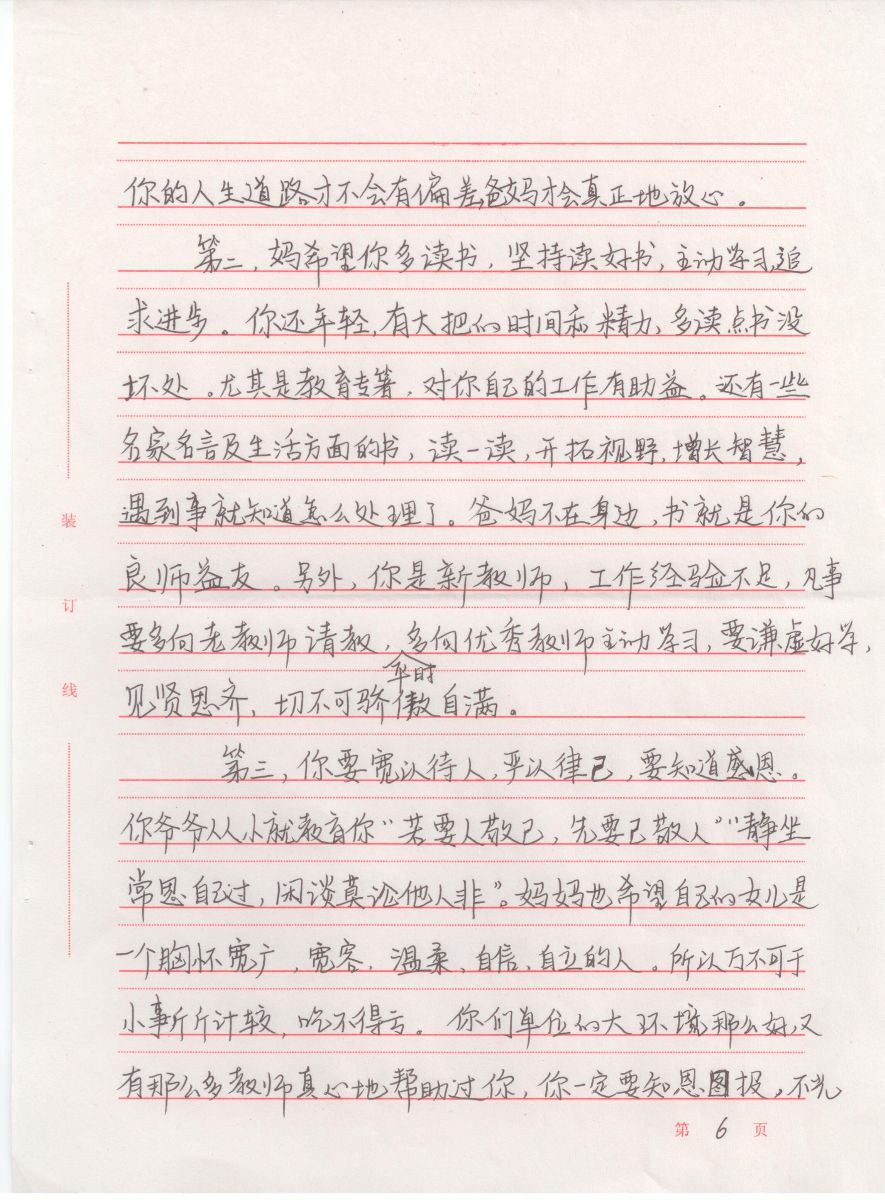 你的人生道路才不会有偏差,爸妈才会真正地放心。
第二,妈希望你多读书,坚持读好书,主动学习,追
求进步。你还年轻,有大把的时间和精力,多读点书没
坏处。尤其是教育专著,对你自己的工作有助益。还有一些
名家名言及生活方面的书,读一读,开拓视野,增长智慧,
遇到事就知道怎么处理了。爸妈不在身边,书就是你的
良师益友。另外,你是新教师,工作经验不足,凡事
要多向老教师请教,多向优秀教师主动学习,要谦虚好学,
见贤思齐,切不可骄傲自满。
第三,你要宽以待人,严以律己,要知道感恩。
你爷爷从小就教育你“若要人敬己,先要己敬人”“静坐
常思自己过,闲谈莫论他人非”。妈妈也希望自己的女儿是
一个胸怀宽广、宽容、温柔、自信、自立的人。所以万不可于
小事斤斤计较,吃不得亏。你们单位的大环境那么好,又
有那么多教师真心地帮助过你,你一定要知恩图报,不光
装
订
线
第 6 页